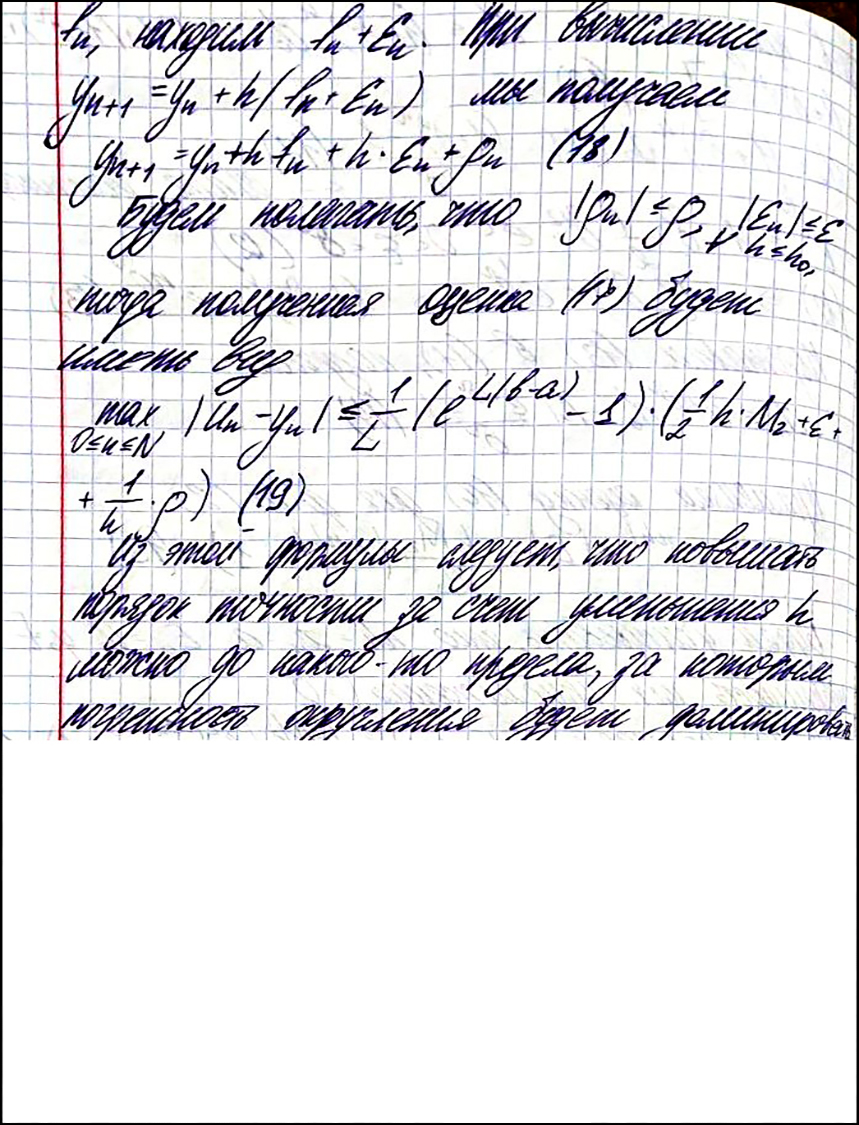 fₙ, находим fₙ + εₙ. При вычислении
yₙ₊₁ = yₙ + h(fₙ + εₙ) мы получаем
yₙ₊₁ = yₙ + h fₙ + h · εₙ + ρₙ (18)
Будем полагать, что |ρₙ| ≤ ρ, |εₙ| ≤ ε
∀ h ≤ h₀,
тогда полученная оценка (17) будет
иметь вид
max |uₙ - yₙ| ≤ 1/L (e^{L(b-a)} - 1) · (1/2 h · M₂ + ε +
0≤n≤N
+ 1/h · ρ) (19)
Из этой формулы следует, что повышать
порядок точности за счет уменьшения h
можно до какого-то предела, за которым
погрешность округления будет доминировать